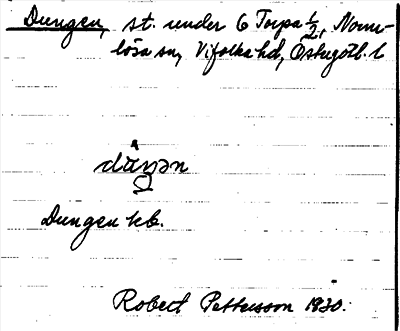 Dungen, st. under 6 Torpa 1/2, Norm-
lösa sn, Vifolka hd, Östergötl. l
Dungen kb.
Robert Pettersson 1930.